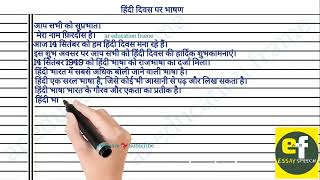 हिंदी दिवस पर भाषण
आप सभी को सुप्रभात।
मेरा नाम फ़िरदौस है।
आज 14 सितंबर को हम हिंदी दिवस मना रहे हैं।
इस शुभ अवसर पर आप सभी को हिंदी दिवस की हार्दिक शुभकामनाएं।
14 सितंबर 1949 को हिंदी भाषा को राजभाषा का दर्जा मिला।
हिंदी भारत में सबसे अधिक बोली जाने वाली भाषा है।
हिंदी एक सरल भाषा है, जिसे कोई भी आसानी से पढ़ और लिख सकता है।
हिंदी भाषा भारत के गौरव और एकता का प्रतीक है।
हिंदी भा
Subscribe
ef
ESSAY SPEECH